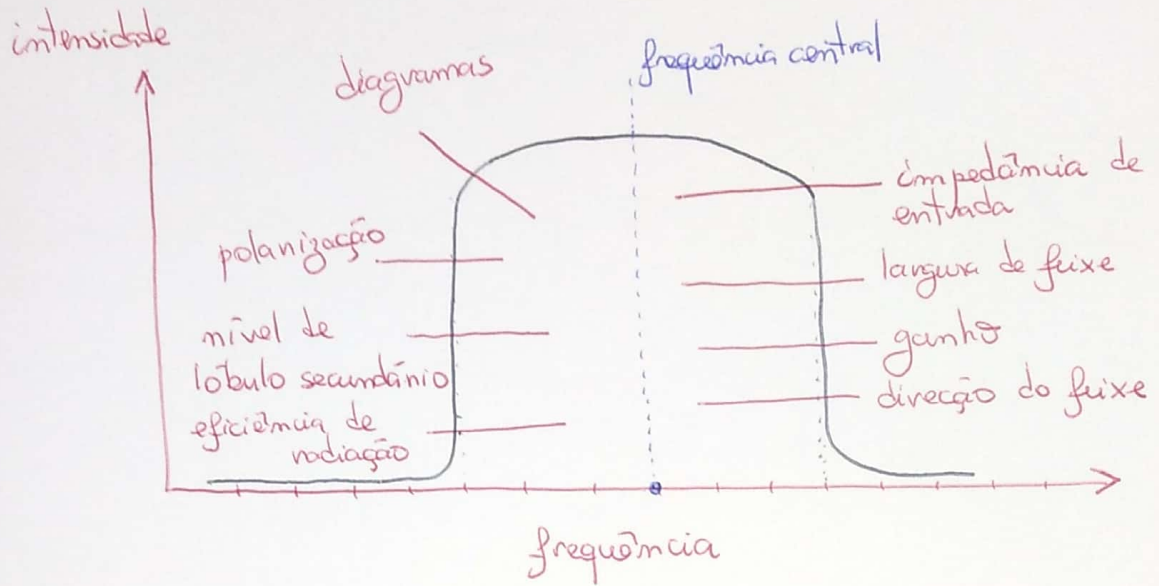 intensidade
diagramas
frequência central
polarização
nível de
lóbulo secundário
eficiência de
radiação
impedância de
entrada
largura de feixe
ganho
direcção do feixe
frequência